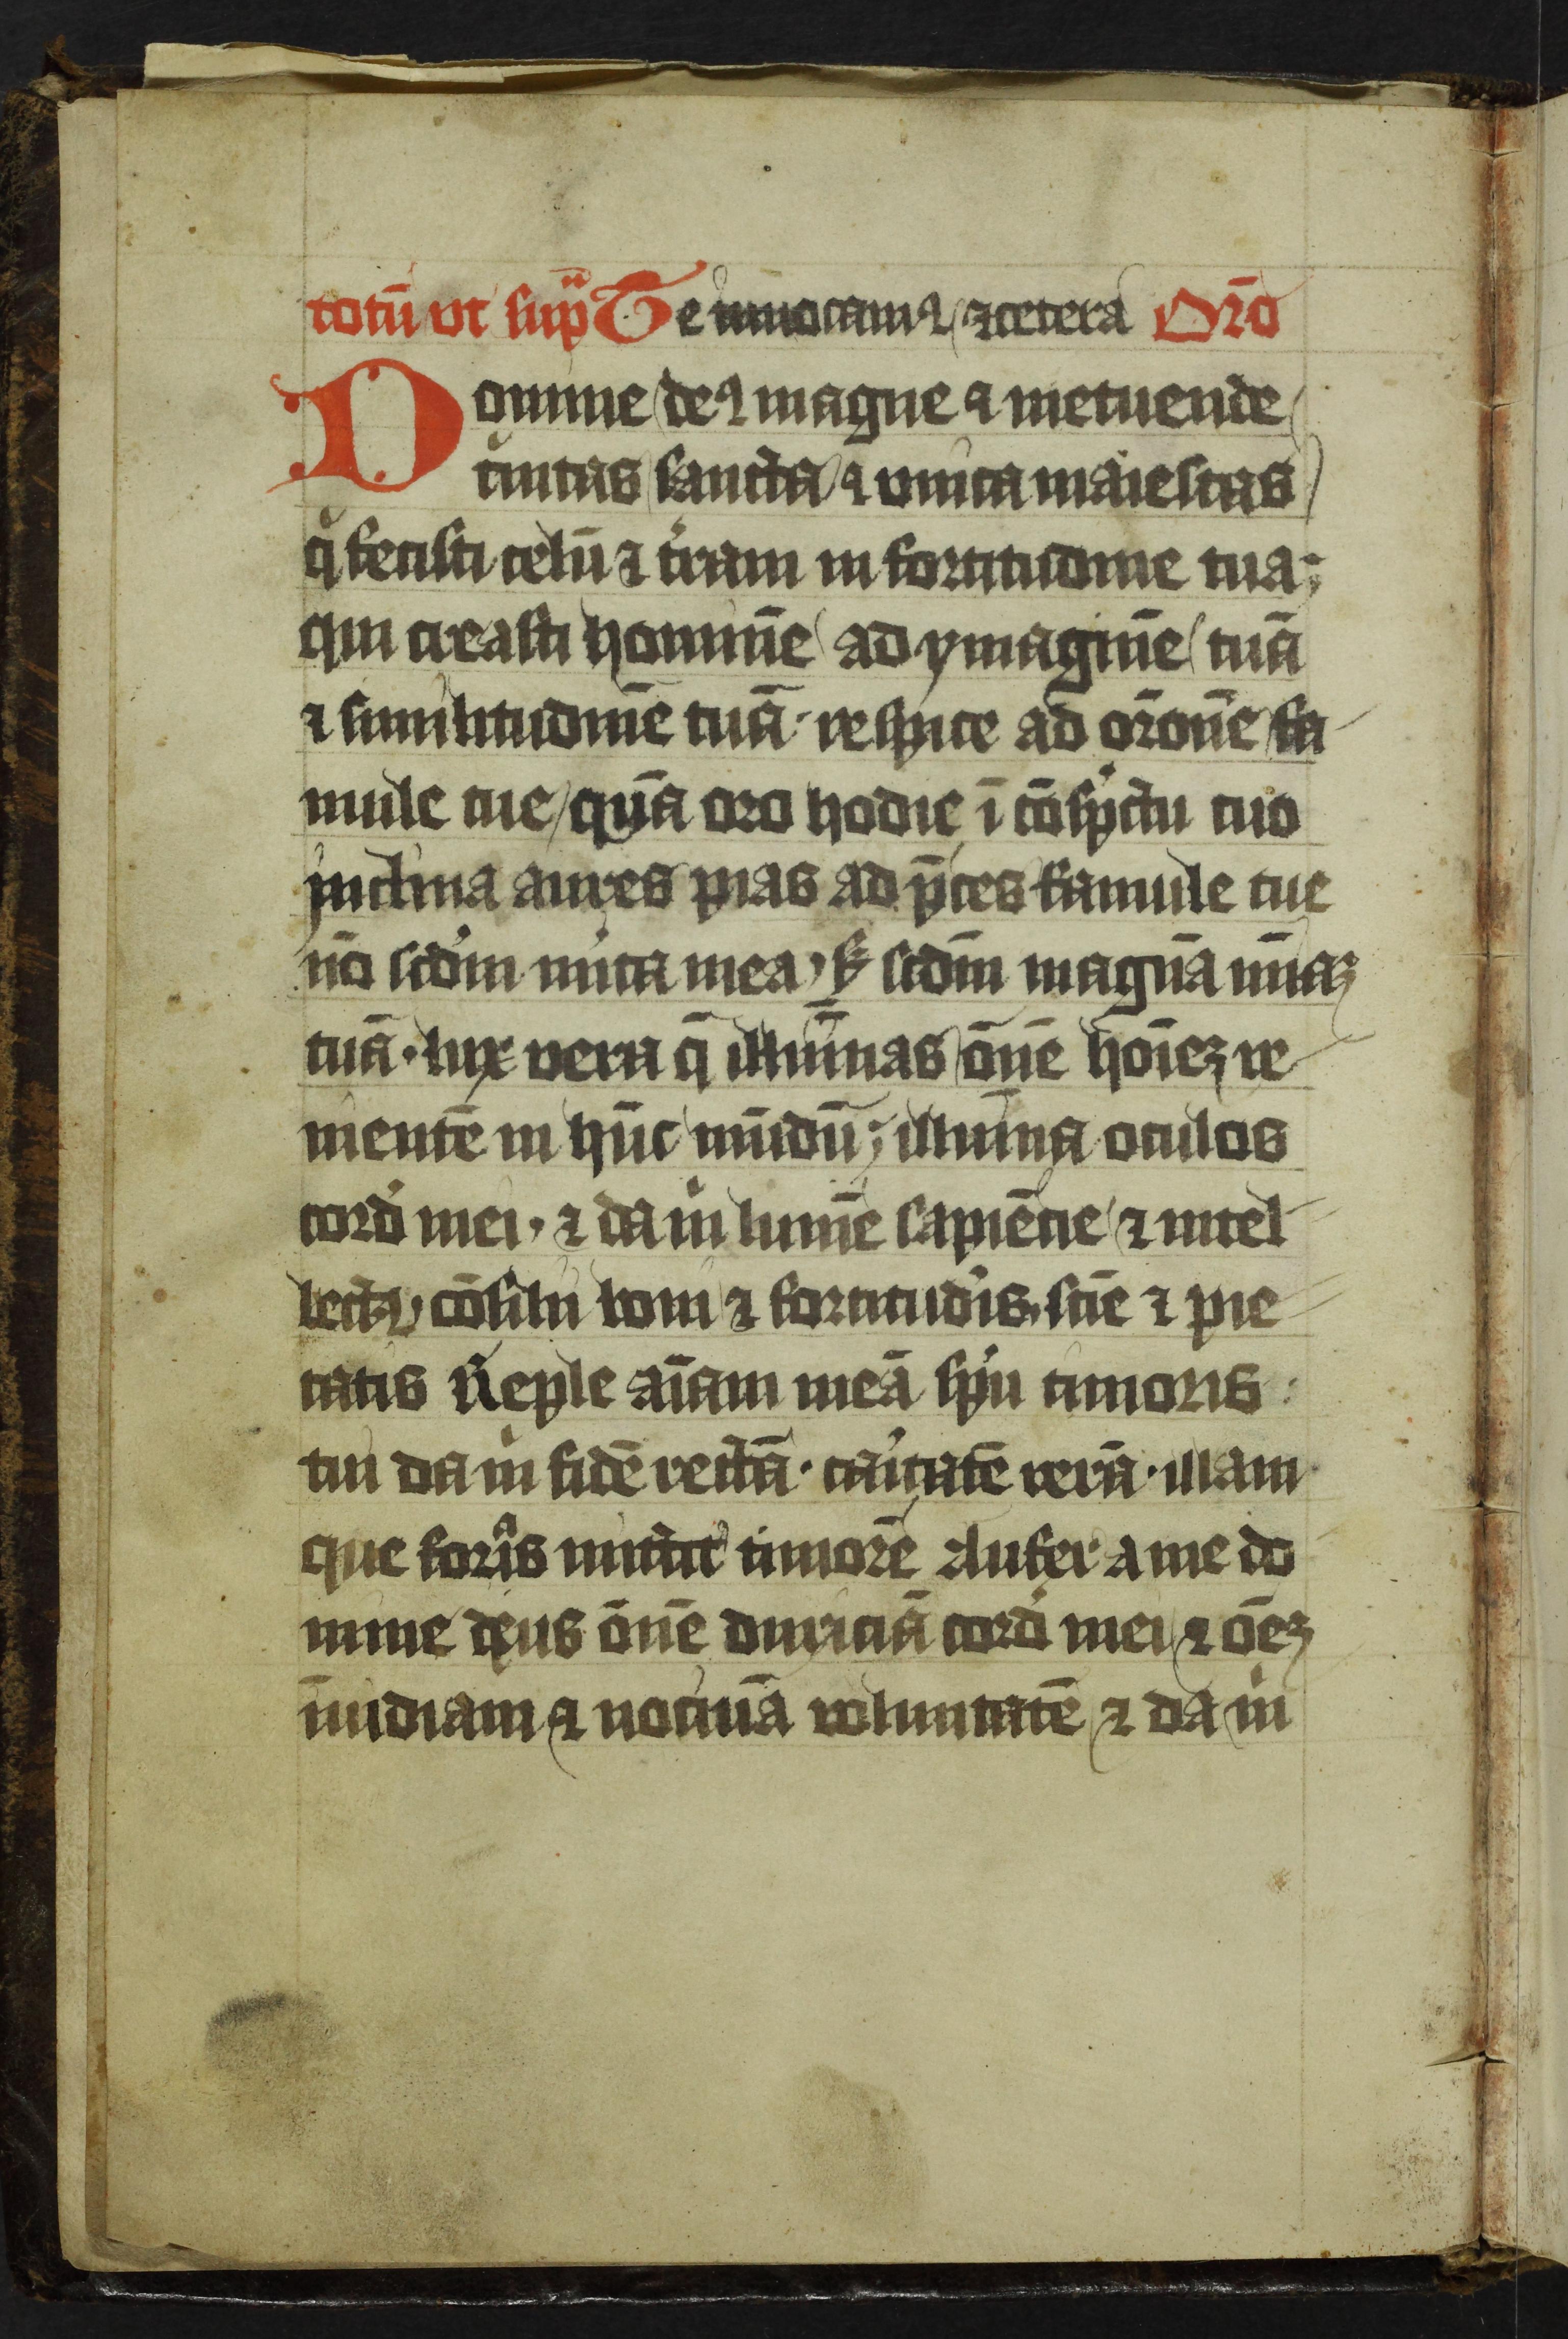 totū ut sup̄ª Te inuocamꝰ ⁊cetera Orō
Domine deꝰ magne ⁊ metuende
tͥnitas sancta ⁊ vnica maiestas
qͥ fecisti celū ⁊ tr̄ram in fortitudine tua;
qui creasti hominē ad ymaginē tuā
⁊ similitudinē tuā· respice ad orōnē fa
mule tue quā oro hodie ī cōspc̄tu tuo
inclina aures pias ad p̄ces famule tue
nō scd̓m mͥita mea, sꝫ scdm̄ magnā mīaꝫ
tuā· lux vera q̄ illūīnas ōnē hoīeꝫ ve
nientē in hūc mūdū; illumīa oculos
cord̓ mei· ⁊ da mͥ lumē sapiētie ⁊ intel
lectꝰ, cōsilii boni ⁊ fortitud̓is, scīē ⁊ pie
tatis Reple aīam meā spū timoris
tui da mͥ fidē rectā· caͥtatē verā· illam
que foras mittit timorē Aufer a me do
mine deus ōnē duriciā cord̓ mei ⁊ oēꝫ
īuidiam ⁊ nociuā voluntatē ⁊ da mͥ